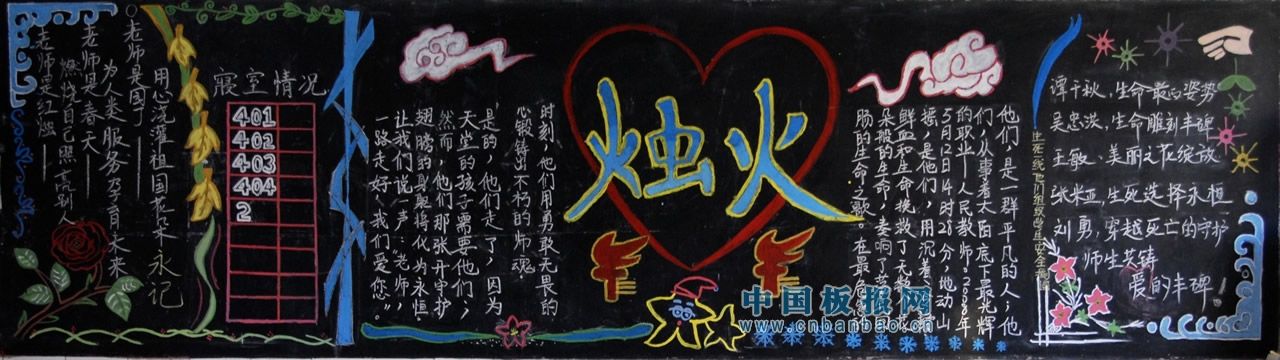 老师是红烛
燃烧自己照亮别人
老师是春天
为人类服务孕育未来
老师是园丁
用心浇灌祖国花朵
永记
寝室情况
401
402
403
404
2
烛火
他们，是一群平凡的人；他
们，从事着太阳底下最光辉
的职业—人民教师。2008年
5月12日14时28分，地动山
摇，是他们，用沉着、
鲜血和生命挽救了无数
朵般的生命，奏响了
肠的生命之歌。在最危
时刻，他们用勇敢无畏的
心锻铸出不朽的师魂。
是的，他们走了，因为
天堂的孩子需要他们，
然而，他们那张开守护
翅膀的身躯将化为永恒
让我们说一声：“老师，
一路走好，我们爱您。”
谭千秋，生命最后姿势
吴忠洪，生命雕刻丰碑
王敏、美丽之花绽放
张米亚，生死选择永恒
刘勇，穿越死亡的守护
师生共铸
爱的丰碑！
中国板报网
www.cnbanbao.cn